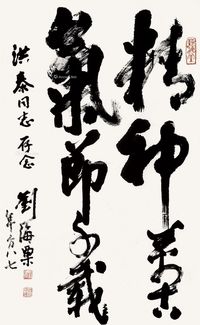 精神萬古
氣節千載
洪泰同志存念
劉海粟
年方八七